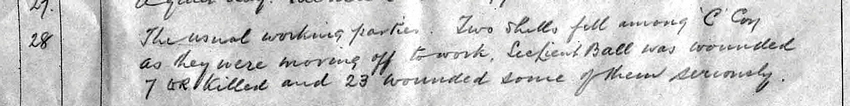 27.
28 The usual working parties. Two shells fell among 'C' Coy
as they were moving off to work, Serjent Ball was wounded
7 OR Killed and 23 wounded some of them seriously.